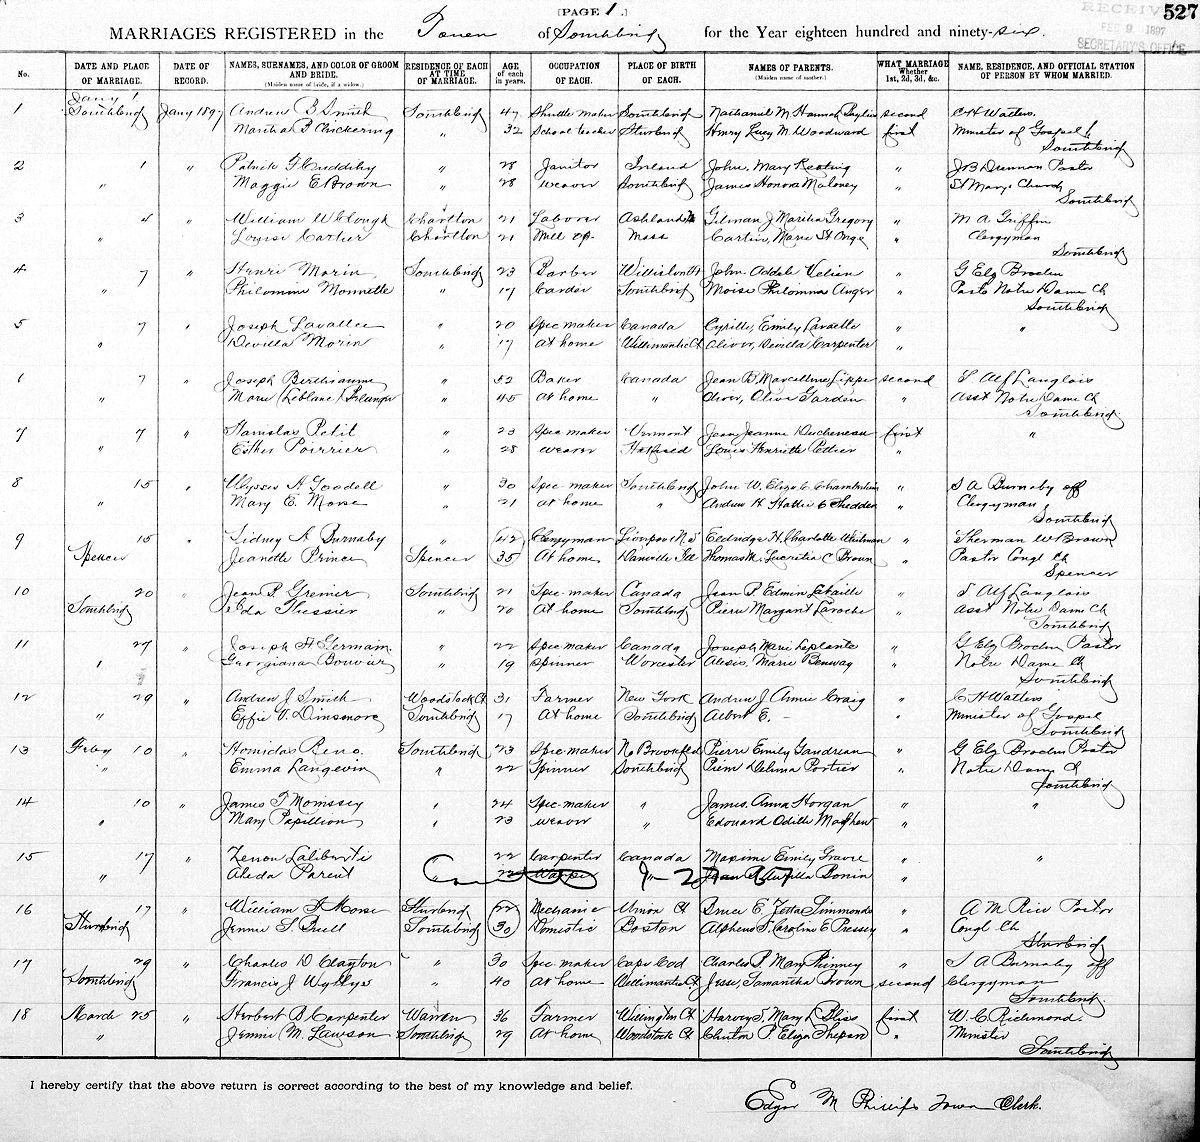 [PAGE 1.]
527
RECEIVED
FEB 9 1897
SECRETARY'S OFFICE
MARRIAGES REGISTERED in the Town of Southbridg for the Year eighteen hundred and ninety-six.
No. DATE AND PLACE OF MARRIAGE. DATE OF RECORD. NAMES, SURNAMES, AND COLOR OF GROOM AND BRIDE. (Maiden name of bride, if a widow.) RESIDENCE OF EACH AT TIME OF MARRIAGE. AGE of each in years. OCCUPATION OF EACH. PLACE OF BIRTH OF EACH. NAMES OF PARENTS. (Maiden name of mother.) WHAT MARRIAGE Whether 1st, 2d, 3d, &c. NAME, RESIDENCE, AND OFFICIAL STATION OF PERSON BY WHOM MARRIED.
1 Jany 1 Southbridg Jany 1897 Andrew B Smith Southbridg 47 Shuttle maker Southbridg Nathaniel M Hannah second C H Watters
Martha P Chickering " 32 School teacher Sturbridg Henry Lucy M. Woodward first Minister of Gospel
Southbridg
2 1 " Patrick F Cuddihy " 28 Janitor Ireland John, Mary Keating " J B Drennan Pastor
" Maggie E Brown " 28 weaver Southbridg James Honora Maloney " St Marys Church
Southbridg
3 " 4 " William W Clough Charlton 21 Laborer Ashland Gilman J Martha Gregory " M A Griffin
" Louise Cartier Charlton 21 Mill op Mass Cartier, Marie St Onge " Clergyman
Southbridg
4 7 " Henri Morin Southbridg 23 Barber Williston Vt John Addele Velian " G Elz Brochu
" Philomine Monnette " 17 Carder Southbridg Moise Philomina Anger " Pastor Notre Dame Ch
Southbridg
5 7 " Joseph Lavallee " 20 Spec maker Canada Cyrille, Emily Lavallee " "
" Devilla Morin " 17 At home Willimantic Ct Oliver, Devilla Carpenter "
6 7 " Joseph Berthiaume " 52 Baker Canada Jean B, Marcelline second S Alf Langlois
" Marie (Leblanc) Belanger " 45 At home " Oliver, Olive " Asst Notre Dame Ch
Southbridg
7 7 " Stanislas Petit " 23 Spec maker Vermont Jean Jeanne Ducheneau first "
" Esther Poirrier " 28 weaver Hatfield Louis Henriette "
8 15 " Ulysses A Goodell " 30 Spec maker Southbridg John W. Eliza C. Chamberlain " S A Burnaby off
" Mary E. Morse " 21 at home " Andrew H Hattie C Shedden " Clergyman
Southbridg
9 15 " Sidney A Burnaby " 42 Clergyman Liverpool N S Eldridge H. Charlotte " Sherman W Brown
Spencer Jeanette Prince Spencer 35 At home Danville Ill Thomas M. Lucretia C Brown " Pastor Congl Ch
Spencer
10 20 " Jean P. Grenier Southbridg 21 Spec-maker Canada Jean P. Edwin " S Alf Langlois
Southbridg Ida Thessier " 20 At home Southbridg Pierre Margaret Laroche " Asst Notre Dame Ch
Southbridg
11 27 " Joseph St Germain " 22 Spec maker Canada Joseph, Marie Leplante " G Elz Brochu Pastor
" Georgiana Bouvier " 19 Spinner Worcester Alexis, Marie Benway " Notre Dame Ch
Southbridg
12 29 " Andrew J. Smith Woodstock Ct 31 Farmer New York Andrew J Annie Craig " C H Watters
" Effie V. Dinsmore Southbridg 17 At home Southbridg Albert E. - " Minister of Gospel
Southbridg
13 Feby 10 " Homidas Reno. Southbridg 23 Spec-maker No Brookfield Pierre Emily Gaudreau " G Elz Brochu Pastor
" Emma Langevin " 22 Spinner Southbridg Pierre Delima Portier " Notre Dame Ch
Southbridg
14 10 " James T Morrissey " 24 Spec-maker " James, Anna Horgan " "
" Mary Papillion " 23 weaver " Edouard Odille Mayhew "
15 17 " Zenon Laliberti 22 Carpenter Canada Maxime Emily Gravre " "
" Aleda Parent " 22 " Bonin "
16 17 " William F Morse Sturbridg 22 Mechanic Union Ct Bruce E, Zetta Simmonds " A M Rice Pastor
Sturbridg Jennie S. Buell Southbridg 30 Domestic Boston Alpheus S. Caroline E Pressey " Congl Ch
Sturbridg
17 29 " Charles D Clayton " 30 Spec-maker Cape Cod Charles P. Mary Phinney " S A Burnaby off
Southbridg Francis J Wyllys " 40 At home Willimantic Ct Jesse, Samantha Brown second Clergyman
Southbridg
18 March 25 " Herbert B. Carpenter Warren 36 Farmer Willington Ct Harvey S, Mary L Bliss first W. C. Richmond.
" Jennie M. Lawson Southbridg 29 At home Woodstock Ct Clinton P. Eliza Shepard " Minister
Southbridg
I hereby certify that the above return is correct according to the best of my knowledge and belief.
Edgar M Phillips Town Clerk.